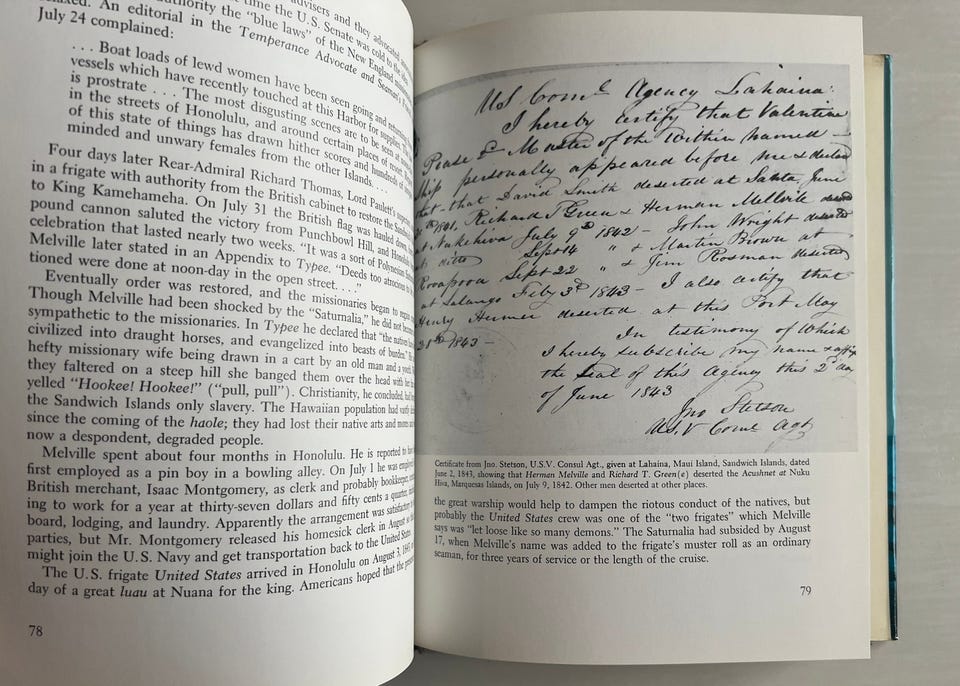 advisers and they advocated
time the U.S. Senate was cold to the
authority the "blue laws" of the New England
relaxed. An editorial in the Temperance Advocate and Seaman's
July 24 complained:
. . . Boat loads of lewd women have been seen going and
vessels which have recently touched at this Harbor for supplies.
is prostrate . . . The most disgusting scenes are to be seen at
in the streets of Honolulu, and around certain places of resort.
of this state of things has drawn hither scores and hundreds of
minded and unwary females from the other Islands. . . .
Four days later Rear-Admiral Richard Thomas, Lord Paulett's
in a frigate with authority from the British cabinet to restore the
to King Kamehameha. On July 31 the British flag was hauled down,
pound cannon saluted the victory from Punchbowl Hill, and Honolulu
celebration that lasted nearly two weeks. "It was a sort of Polynesian
Melville later stated in an Appendix to Typee. "Deeds too atrocious to
tioned were done at noon-day in the open street. . . ."
Eventually order was restored, and the missionaries began to
Though Melville had been shocked by the "Saturnalia," he did not
sympathetic to the missionaries. In Typee he declared that "the natives
civilized into draught horses, and evangelized into beasts of burden."
hefty missionary wife being drawn in a cart by an old man and a
they faltered on a steep hill she banged them over the head with
yelled "Hookee! Hookee!" ("pull, pull"). Christianity, he concluded, had
the Sandwich Islands only slavery. The Hawaiian population had
since the coming of the haole; they had lost their native arts and
now a despondent, degraded people.
Melville spent about four months in Honolulu. He is reported to have
first employed as a pin boy in a bowling alley. On July 1 he was
British merchant, Isaac Montgomery, as clerk and probably bookkeeper,
ing to work for a year at thirty-seven dollars and fifty cents a quarter,
board, lodging, and laundry. Apparently the arrangement was satisfactory
parties, but Mr. Montgomery released his homesick clerk in August so
might join the U.S. Navy and get transportation back to the United
The U.S. frigate United States arrived in Honolulu on August 3,
day of a great luau at Nuana for the king. Americans hoped that the
78
US Coml. Agency Lahaina
I hereby certify that Valentine
Pease Jr Master of the Within named
Ship personally appeared before me & declared
that - that David Smith deserted at Santa, June
Richard T Green & Herman Mellville
at Nukehiva July 9th 1842 - John Wright deserted
at ditto Sept 14 " & Martin Brown at
Roapooa Sept 22 " & Jim Rosman deserted
at Salango Feby 3d 1843 - I also certify that
Henry Hermer deserted at this Port May
1843 -
In testimony of Which
I hereby subscribe my name & affix
the Seal of this Agency this 2d day
of June 1843
Jno Stetson
U.S.V Coml Agt
Certificate from Jno. Stetson, U.S.V. Consul Agt., given at Lahaina, Maui Island, Sandwich Islands, dated
June 2, 1843, showing that Herman Melville and Richard T. Green(e) deserted the Acushnet at Nuku
Hiva, Marquesas Islands, on July 9, 1842. Other men deserted at other places.
the great warship would help to dampen the riotous conduct of the natives, but
probably the United States crew was one of the "two frigates" which Melville
says was "let loose like so many demons." The Saturnalia had subsided by August
17, when Melville's name was added to the frigate's muster roll as an ordinary
seaman, for three years of service or the length of the cruise.
79